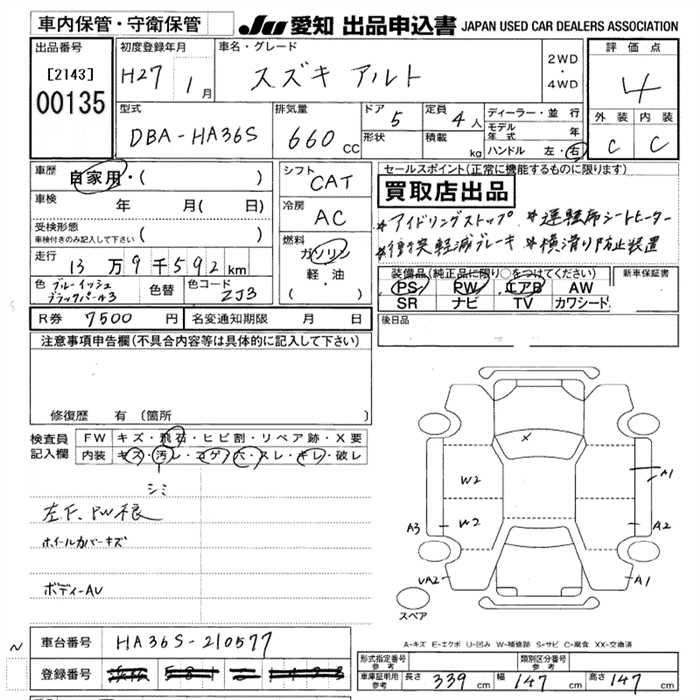 車内保管・守衛保管
JU 愛知 出品申込書 JAPAN USED CAR DEALERS ASSOCIATION
出品番号
[2143]
00135
初度登録年月
H27 1月
車名・グレード
スズキ アルト
2WD
・
4WD
評価点
4
外装 内装
C C
型式
DBA-HA36S
排気量
660 cc
ドア 5
形状
定員 4人
積載 kg
ディーラー・並行
モデル年式 年
ハンドル 左・右
車歴
自家用・( )
車検 年 月( 日)
受検形態
車検付きのみ記入して下さい ( )
走行
13万9千592km
色 ブルーイッシュブラックパール3
色替
色コード ZJ3
シフト
CAT
冷房
AC
燃料
ガソリン
軽・油
( )
セールスポイント(正常に機能するものに限ります)
買取店出品
*アイドリングストップ *運転席シートヒーター
*衝突軽減ブレーキ *横滑り防止装置
装備品(純正品に限り○をつけてください)
PS PW エアB AW
SR ナビ TV カワシート
新車保証書
R券 7500円 名変通知期限 月 日
後日品
注意事項申告欄(不具合内容等は具体的に記入して下さい)
修復歴 有 (箇所 )
検査員記入欄
FW キズ・飛石・ヒビ割・リペア跡・X要
内装 キズ・汚レ・コゲ・穴・スレ・キレ・破レ
シミ
左F.PW根
ホイールカバーキズ
ボディーAU
X
W2
W2
A1
A3
A2
UA2
A1
スペア
A-キズ E-エクボ U-凹み W-補修跡 S-サビ C-腐食 XX-交換済
車台番号 HA36S-210577
登録番号
形式指定番号 参考
類別区分番号 参考
車庫証明用 参考
長さ 339cm 幅 147cm 高さ 147cm